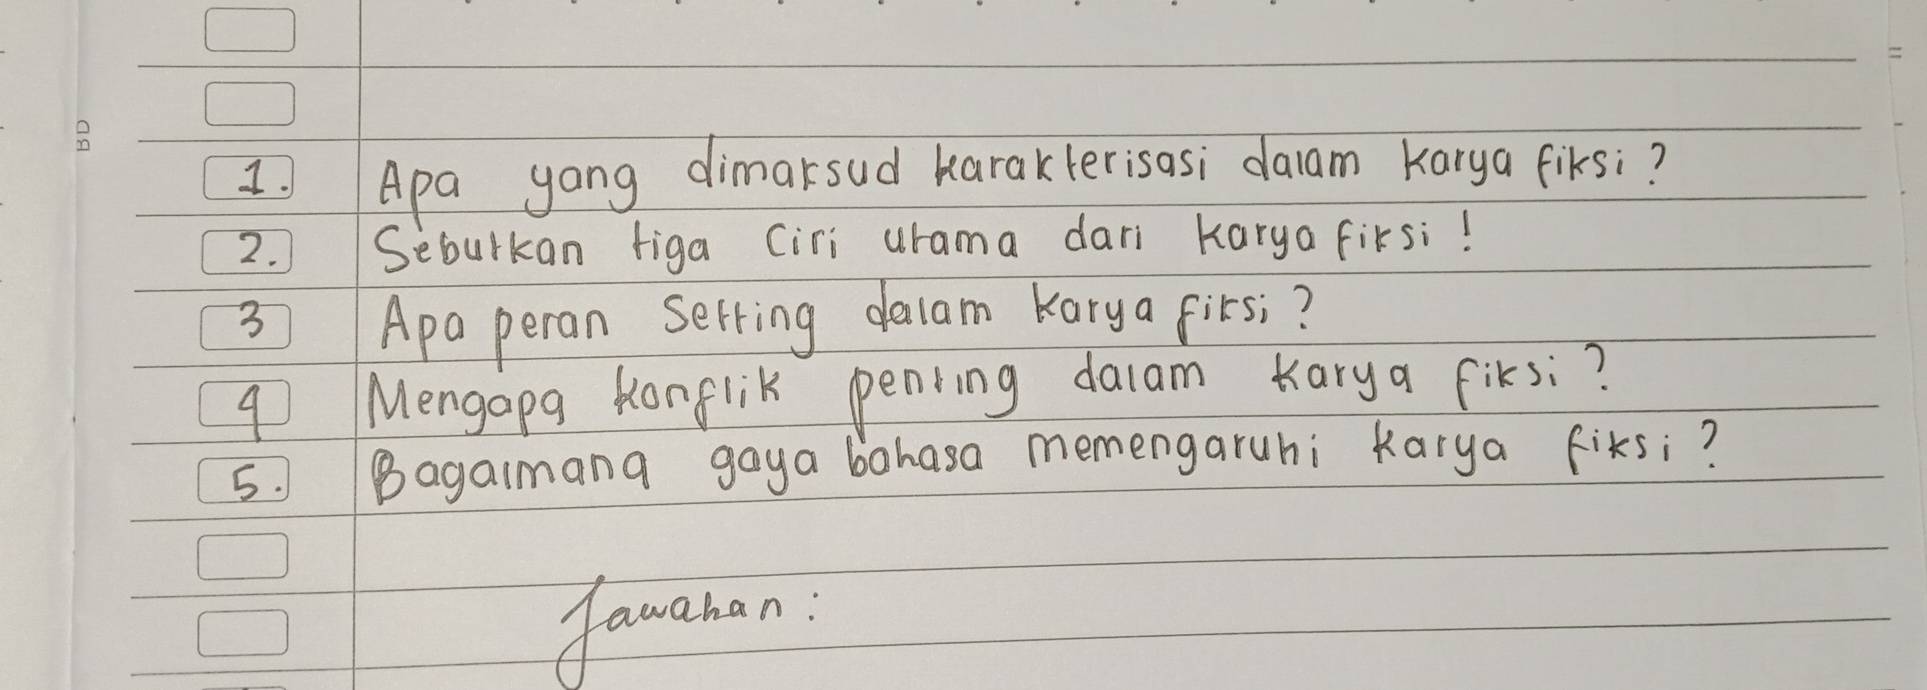 BD
1. Apa yang dimaksud karakterisasi dalam karya fiksi?
2. Sebutkan tiga ciri utama dari karya fiksi!
3 Apa peran setting dalam karya fiksi?
4 Mengapa konflik penting dalam karya fiksi?
5. Bagaimana gaya bahasa memengaruhi karya fiksi?
Jawaban: